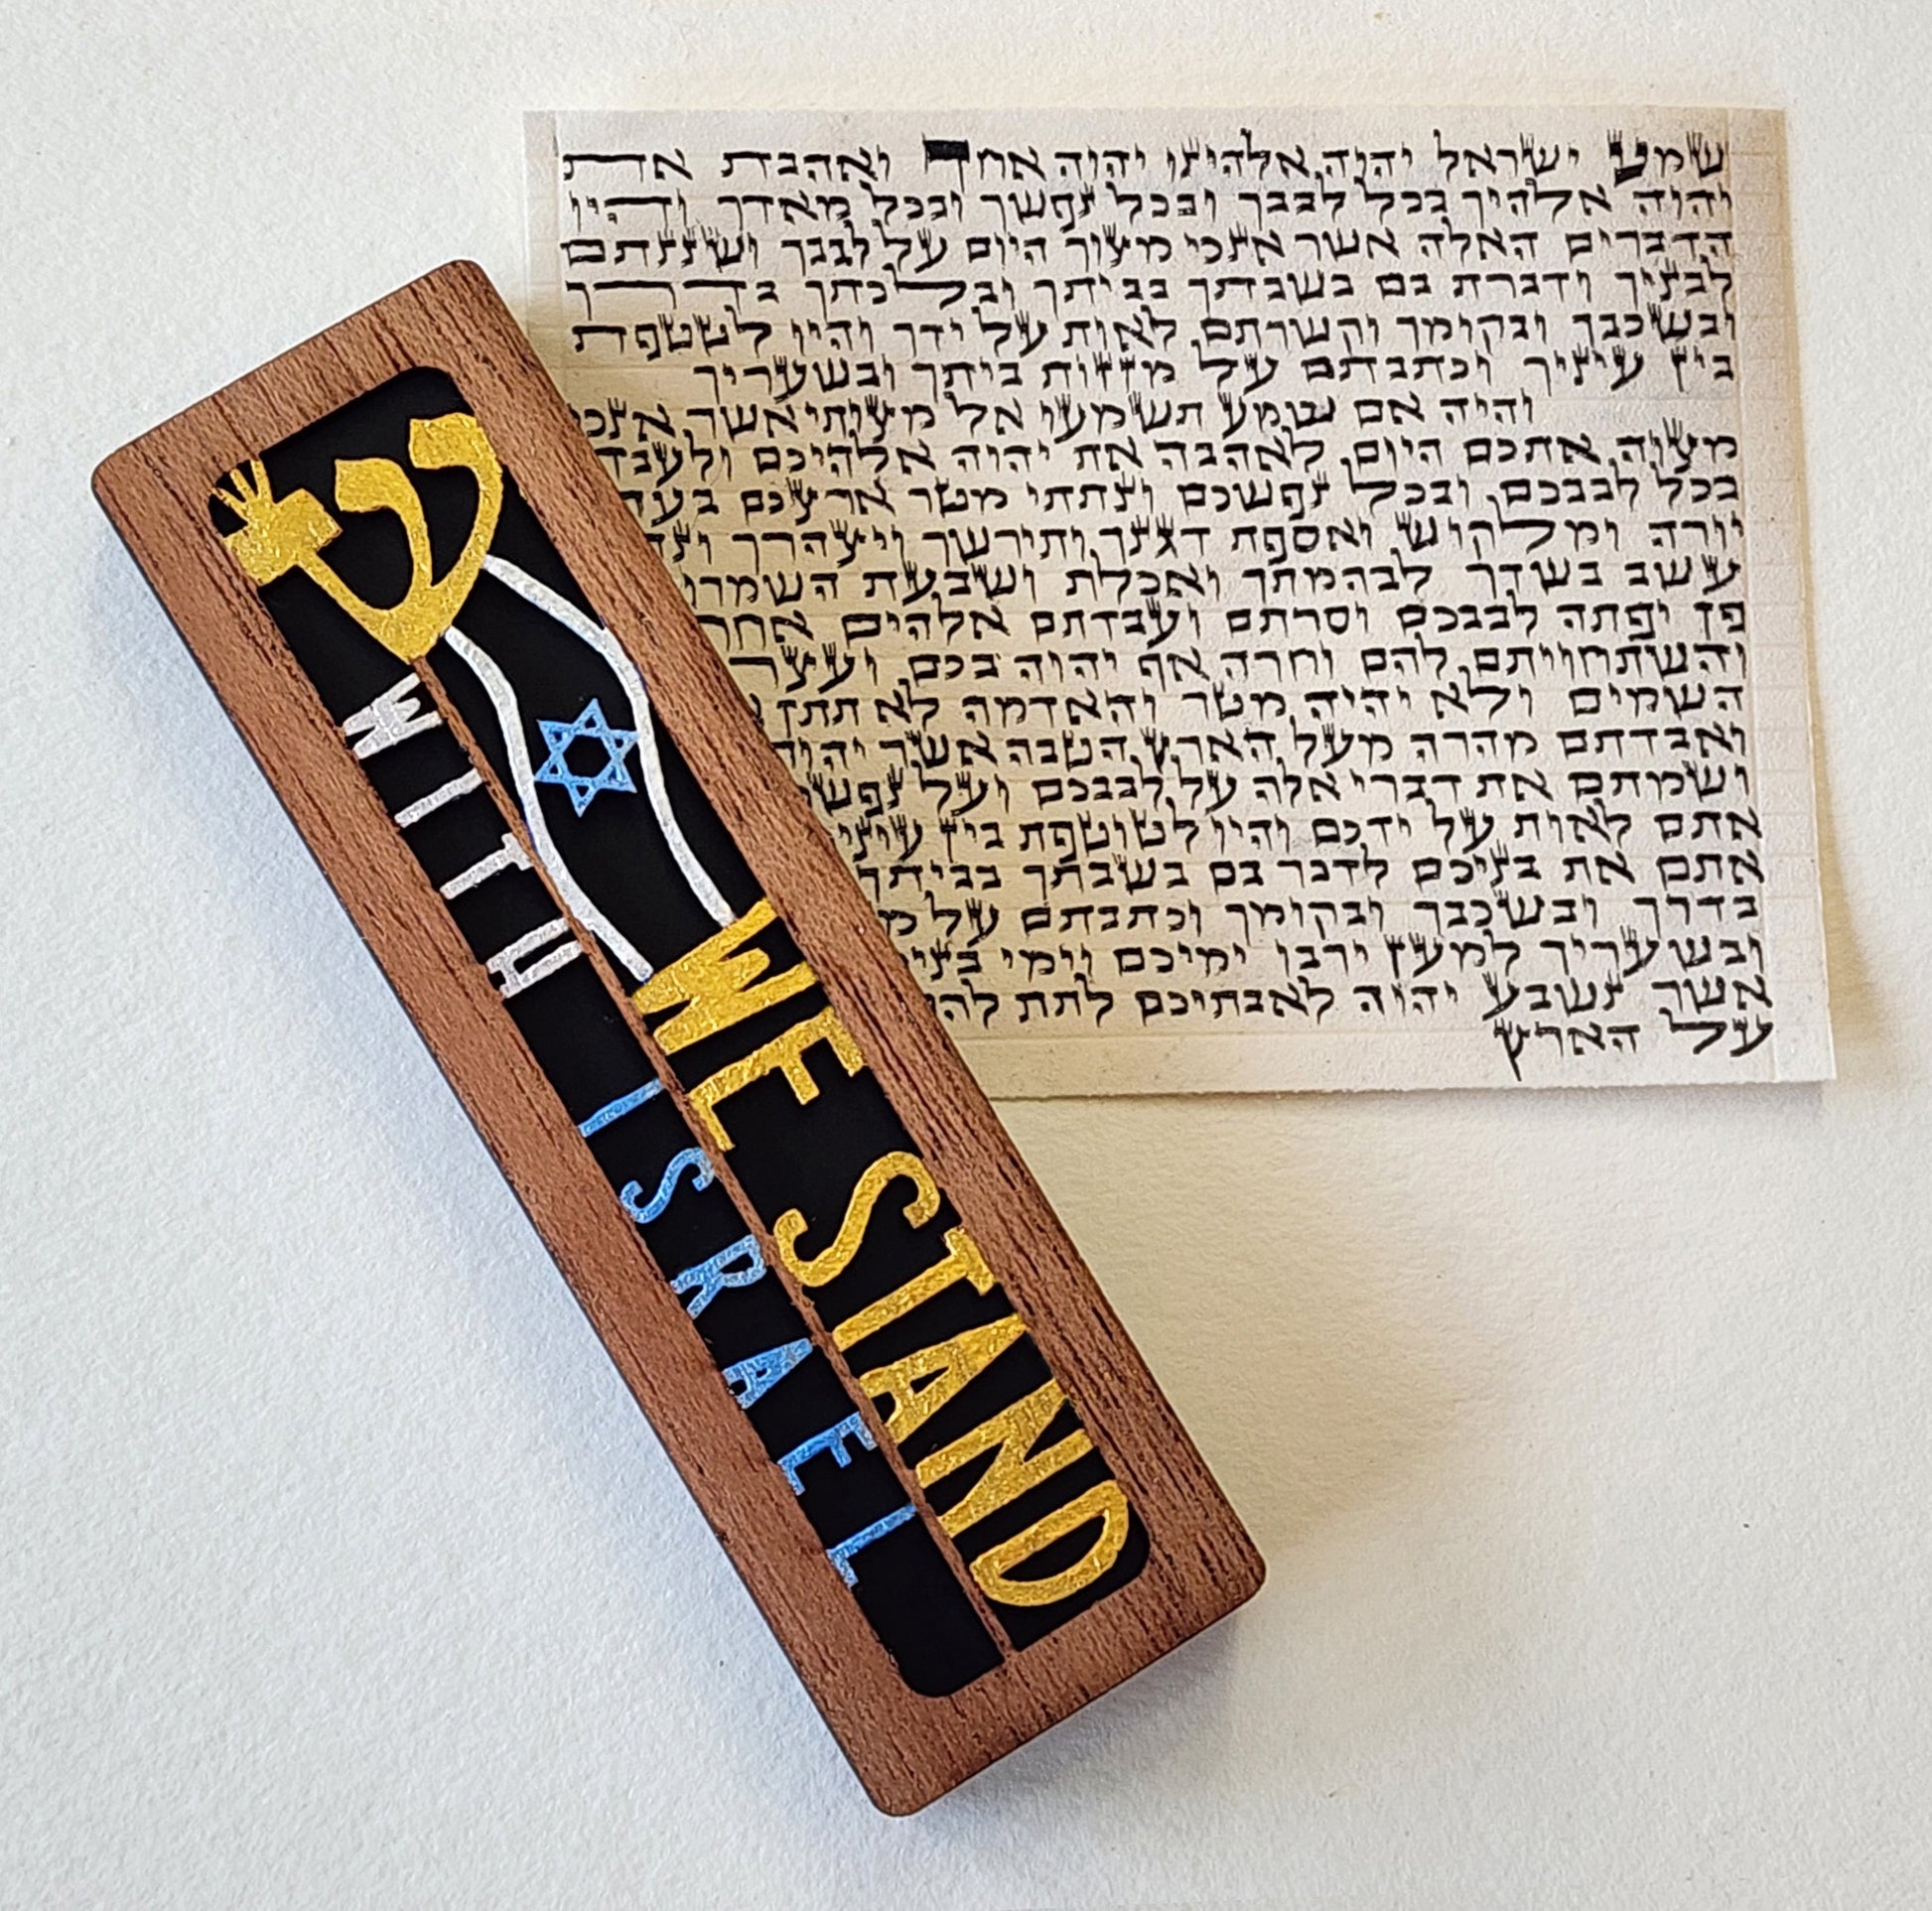 שמע ישראל יהוה אלהינו יהוה אחד ואהבת את
יהוה אלהיך בכל לבבך ובכל נפשך ובכל מאדך והיו
הדברים האלה אשר אנכי מצוך היום על לבבך ושננתם
לבניך ודברת בם בשבתך בביתך ובלכתך בדרך
ובשכבך ובקומך וקשרתם לאות על ידך והיו לטטפת
בין עיניך וכתבתם על מזזות ביתך ובשעריך
והיה אם שמע תשמעו אל מצותי אשר אנכ
מצוה אתכם היום לאהבה את יהוה אלהיכם ולעבד
בכל לבבכם ובכל נפשכם ונתתי מטר ארצכם בעת
יורה ומלקוש ואספת דגנך ותירשך ויצהרך
עשב בשדך לבהמתך ואכלת ושבעת השמרו
פן יפתה לבבכם וסרתם ועבדתם אלהים אחר
והשתחויתם להם וחרה אף יהוה בכם ועצר
השמים ולא יהיה מטר והאדמה לא תתן
ואבדתם מהרה מעל הארץ הטבה אשר יהוה
ושמתם את דברי אלה על לבבכם ועל נפש
אתם לאות על ידכם והיו לטוטפת בין עיני
אתם את בניכם לדבר בם בשבתך בביתך
בדרך ובשכבך ובקומך וכתבתם על
ובשעריך למען ירבו ימיכם וימי בני
אשר נשבע יהוה לאבתיכם לתת לה
על הארץ
ש
WE STAND
WITH ISRAEL